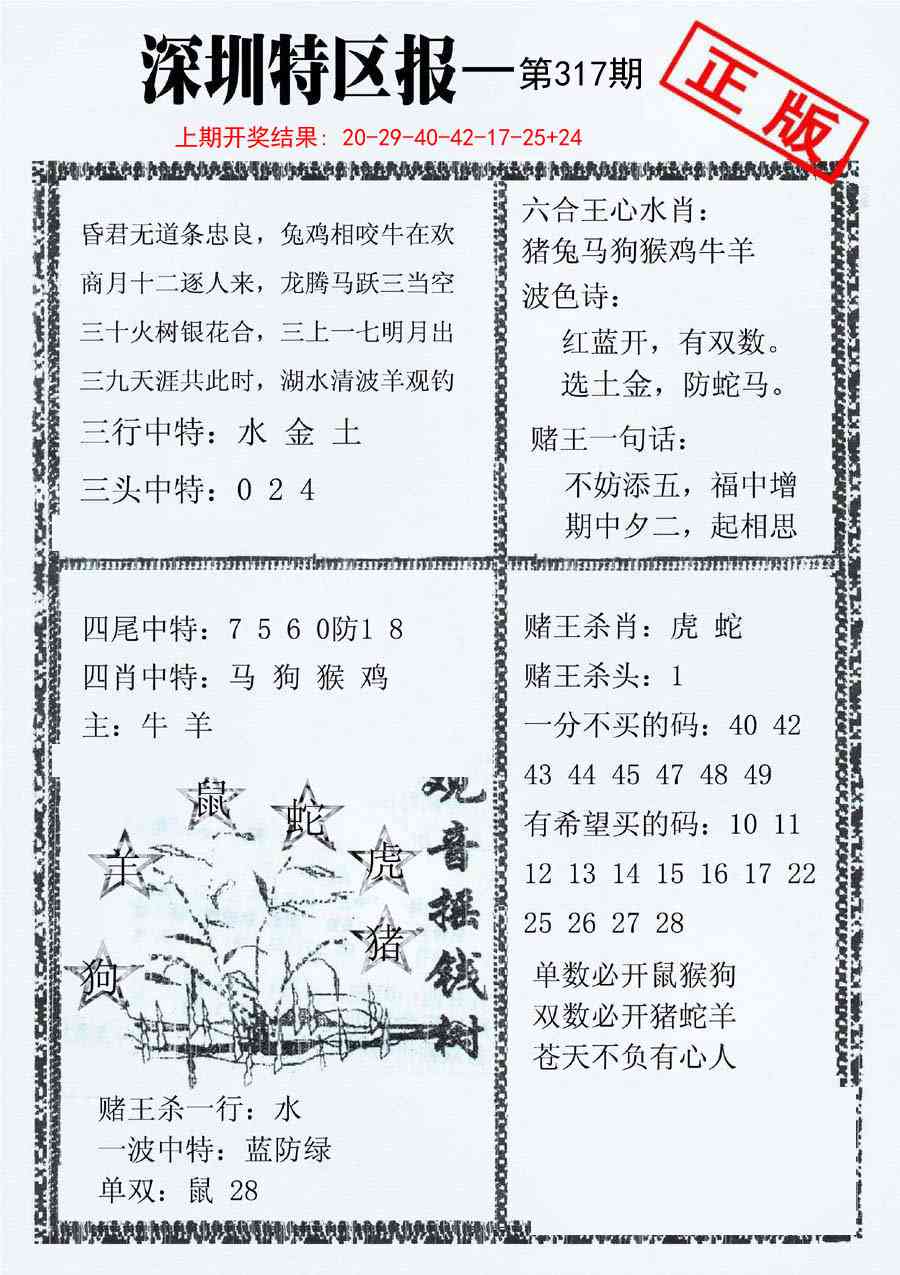 深圳特区报—第317期
正版
上期开奖结果: 20-29-40-42-17-25+24
昏君无道条忠良，兔鸡相咬牛在欢
商月十二逐人来，龙腾马跃三当空
三十火树银花合，三上一七明月出
三九天涯共此时，湖水清波羊观钓
三行中特：水 金 土
三头中特：0 2 4
六合王心水肖：
猪兔马狗猴鸡牛羊
波色诗：
红蓝开，有双数。
选土金，防蛇马。
赌王一句话：
不妨添五，福中增
期中夕二，起相思
四尾中特：7 5 6 0防1 8
四肖中特：马 狗 猴 鸡
主：牛 羊
鼠
蛇
羊
虎
猪
狗
观音摇钱树
赌王杀一行：水
一波中特：蓝防绿
单双：鼠 28
赌王杀肖：虎 蛇
赌王杀头：1
一分不买的码：40 42
43 44 45 47 48 49
有希望买的码：10 11
12 13 14 15 16 17 22
25 26 27 28
单数必开鼠猴狗
双数必开猪蛇羊
苍天不负有心人